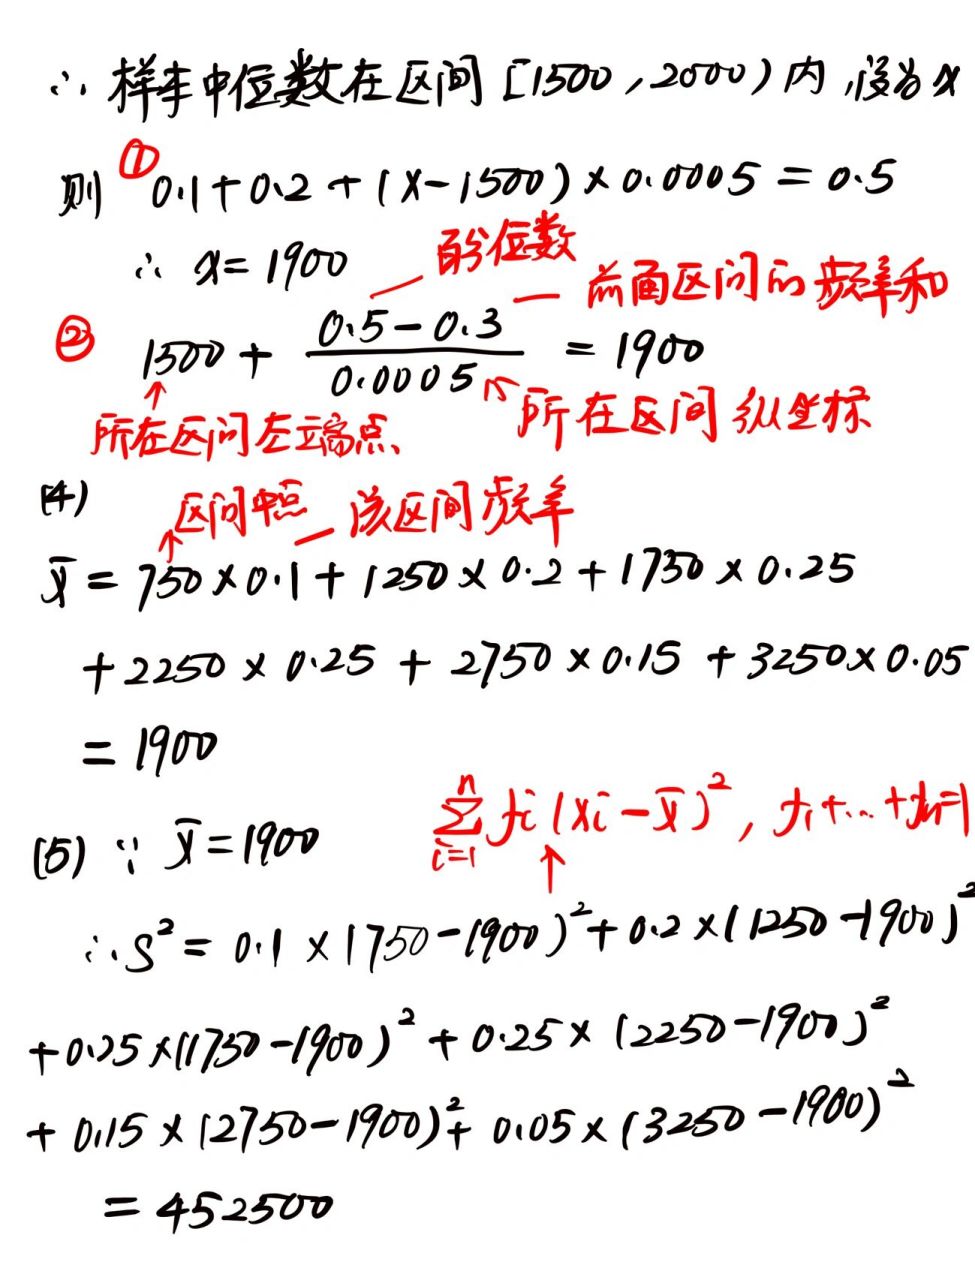 ∴ 样本中位数在区间 [1500,2000) 内,设为 x
则 ① 0.1+0.2+(x-1500)×0.0005=0.5
∴ x=1900
百分位数
前面区间的频率和
② 1500 + (0.5-0.3)/0.0005 = 1900
所在区间左端点、
所在区间纵坐标
(4)
区间中点
该区间频率
x̄ = 750×0.1+1250×0.2+1750×0.25
+2250×0.25+2750×0.15+3250×0.05
=1900
(5) ∵ x̄=1900
∑ⁿᵢ₌₁ fi(xi-x̄)², f₁+…+fn=1
∴S² = 0.1×(750-1900)²+0.2×(1250-1900)²
+0.25×(1750-1900)²+0.25×(2250-1900)²
+0.15×(2750-1900)²+0.05×(3250-1900)²
=452500